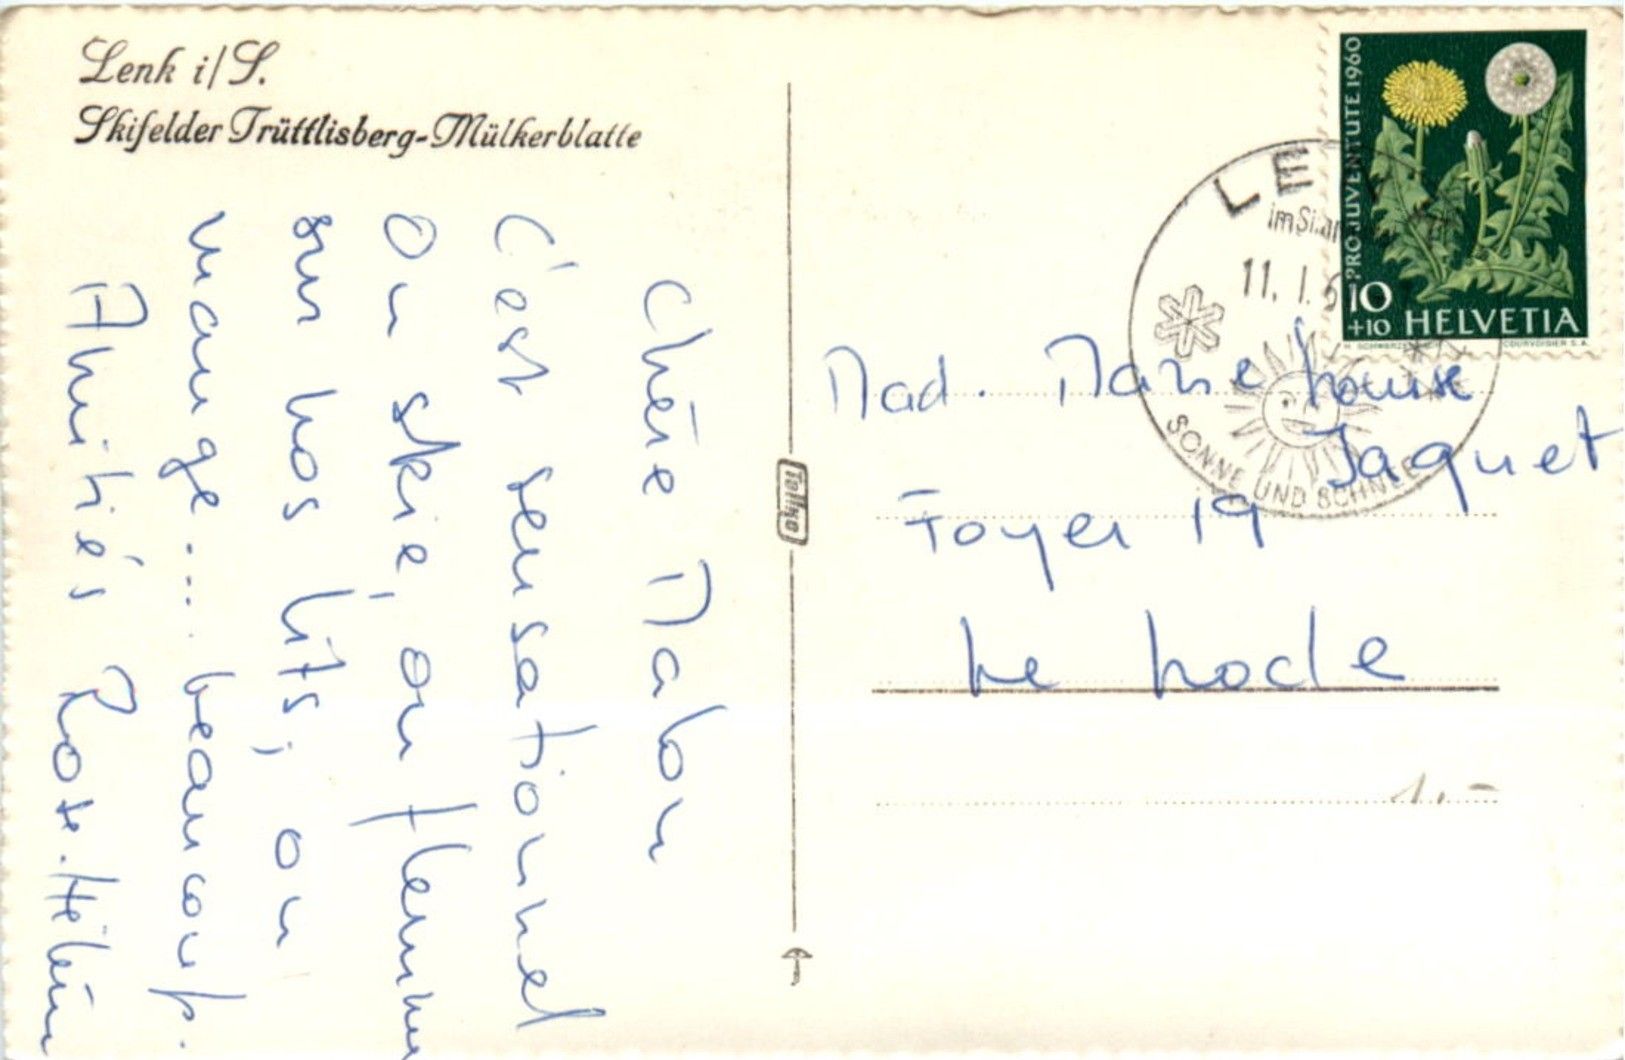 Lenk i/S.
Skifelder Trüttlisberg-Mülkerblatte
Chère Mabon
C'est sensationnel
On skie, on flemme
sur nos lits, on
mange... beaucoup.
Amitiés Rose-Hélène
Telko
LE
im Sim
11. I. 6
SONNE UND SCHNEE
PRO JUVENTUTE 1960
10
+10 HELVETIA
COURVOISIER S.A.
Mad. Marie Louise
Jaquet
Foyer 19
Le Locle
1.-